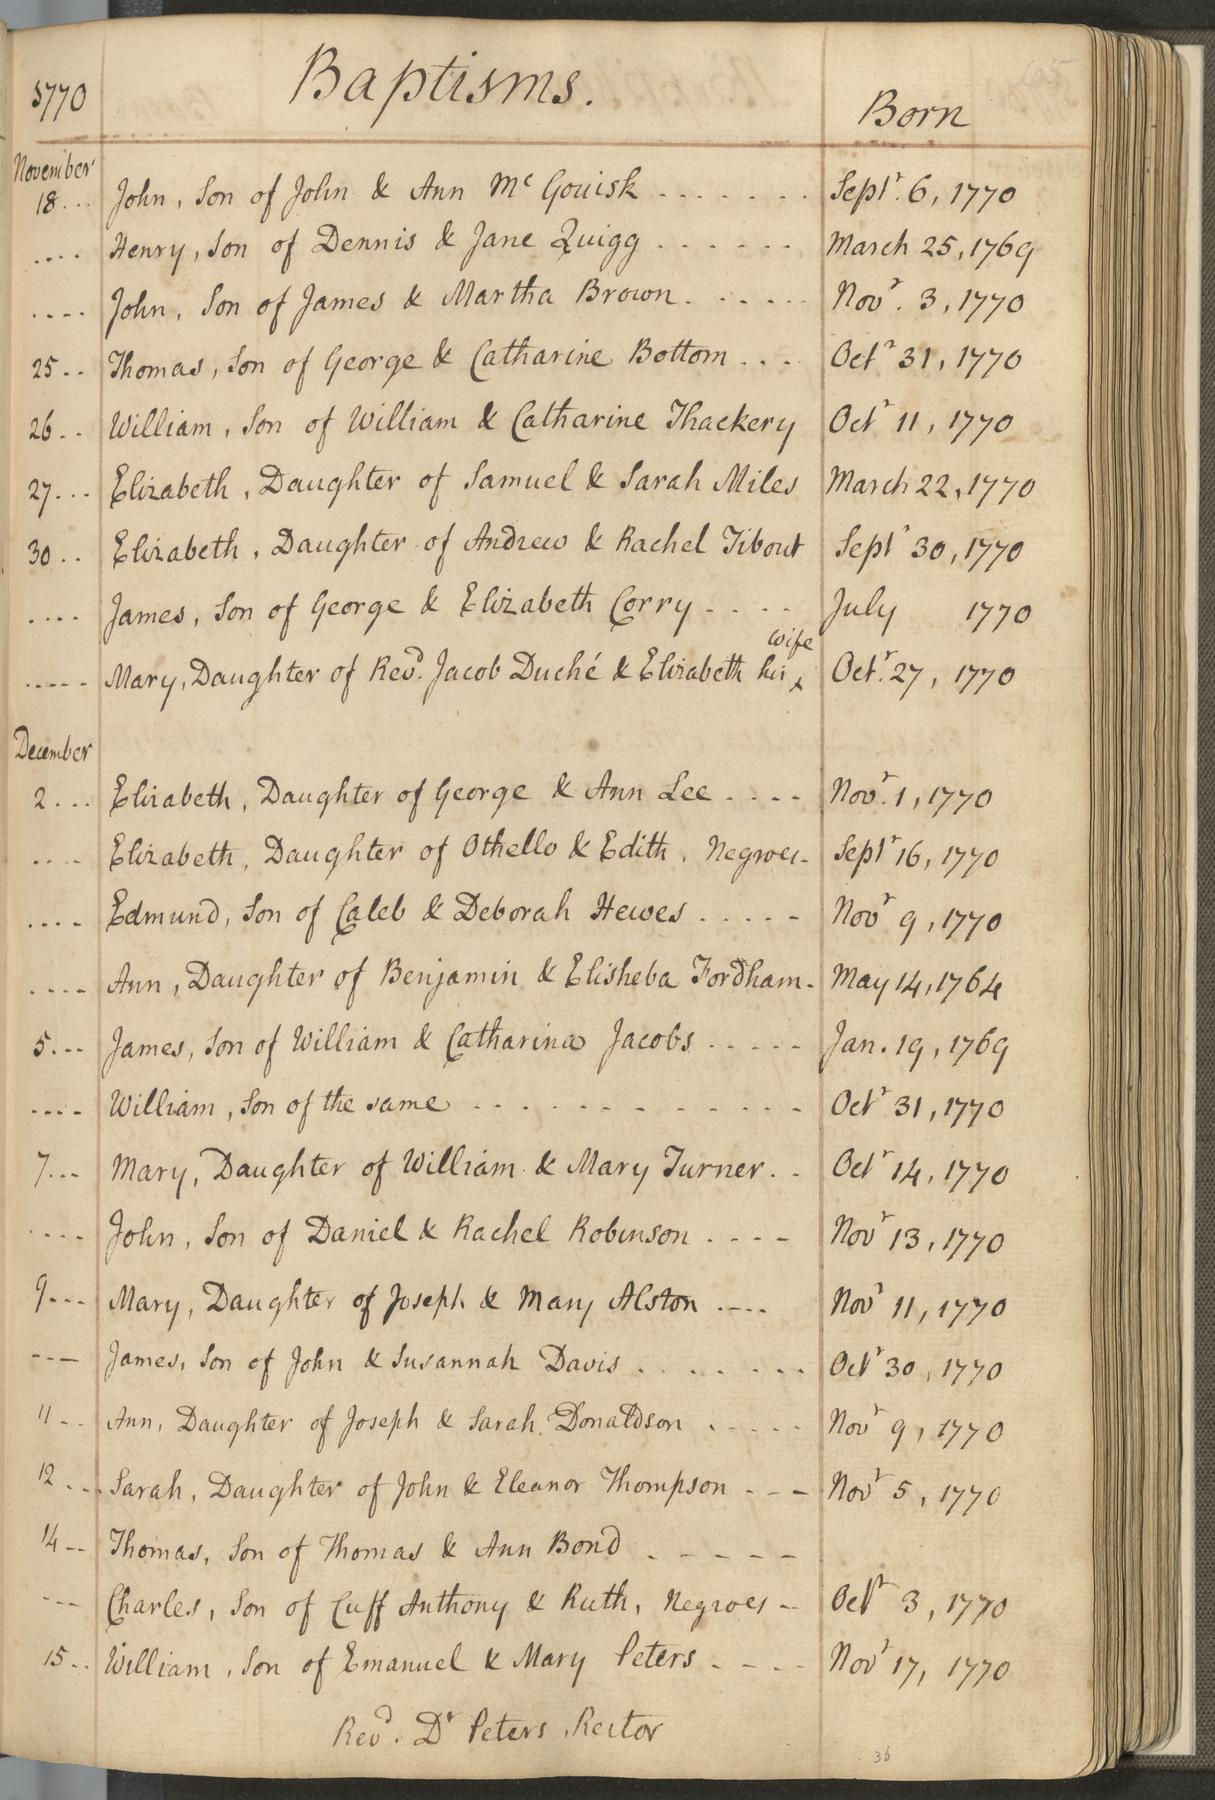 1770 Baptisms. Born
November
18... John, Son of John & Ann Mc Gouisk ....... Septr. 6, 1770
.... Henry, Son of Dennis & Jane Quigg ...... March 25, 1769
.... John, Son of James & Martha Brown ...... Novr. 3, 1770
25.. Thomas, Son of George & Catharine Bottom .... Octr 31, 1770
26.. William, Son of William & Catharine Thackery Octr 11, 1770
27... Elizabeth, Daughter of Samuel & Sarah Miles March 22, 1770
30.. Elizabeth, Daughter of Andrew & Rachel Tibout Septr 30, 1770
.... James, Son of George & Elizabeth Corry .... July 1770
..... Mary, Daughter of Revd. Jacob Duché & Elizabeth his wife Octr. 27, 1770
December
2... Elizabeth, Daughter of George & Ann Lee .... Novr. 1, 1770
.... Elizabeth, Daughter of Othello & Edith, Negroes- Septr 16, 1770
.... Edmund, Son of Caleb & Deborah Hewes ..... Novr 9, 1770
.... Ann, Daughter of Benjamin & Elisheba Fordham - May 14, 1764
5... James, Son of William & Catharina Jacobs ..... Jan. 19, 1769
.... William, Son of the same ............ Octr 31, 1770
7... Mary, Daughter of William & Mary Turner .. Octr 14, 1770
.... John, Son of Daniel & Rachel Robinson .... Novr 13, 1770
9... Mary, Daughter of Joseph & Mary Alston .... Novr 11, 1770
--- James, Son of John & Susannah Davis ....... Octr 30, 1770
11.. Ann, Daughter of Joseph & Sarah Donaldson ..... Novr 9, 1770
12... Sarah, Daughter of John & Eleanor Thompson --- Novr 5, 1770
14-- Thomas, Son of Thomas & Ann Bond .-----
--- Charles, Son of Cuff Anthony & Ruth, Negroes -- Octr 3, 1770
15.. William, Son of Emanuel & Mary Peters .... Novr 17, 1770
Revd. Dr Peters Rector
36